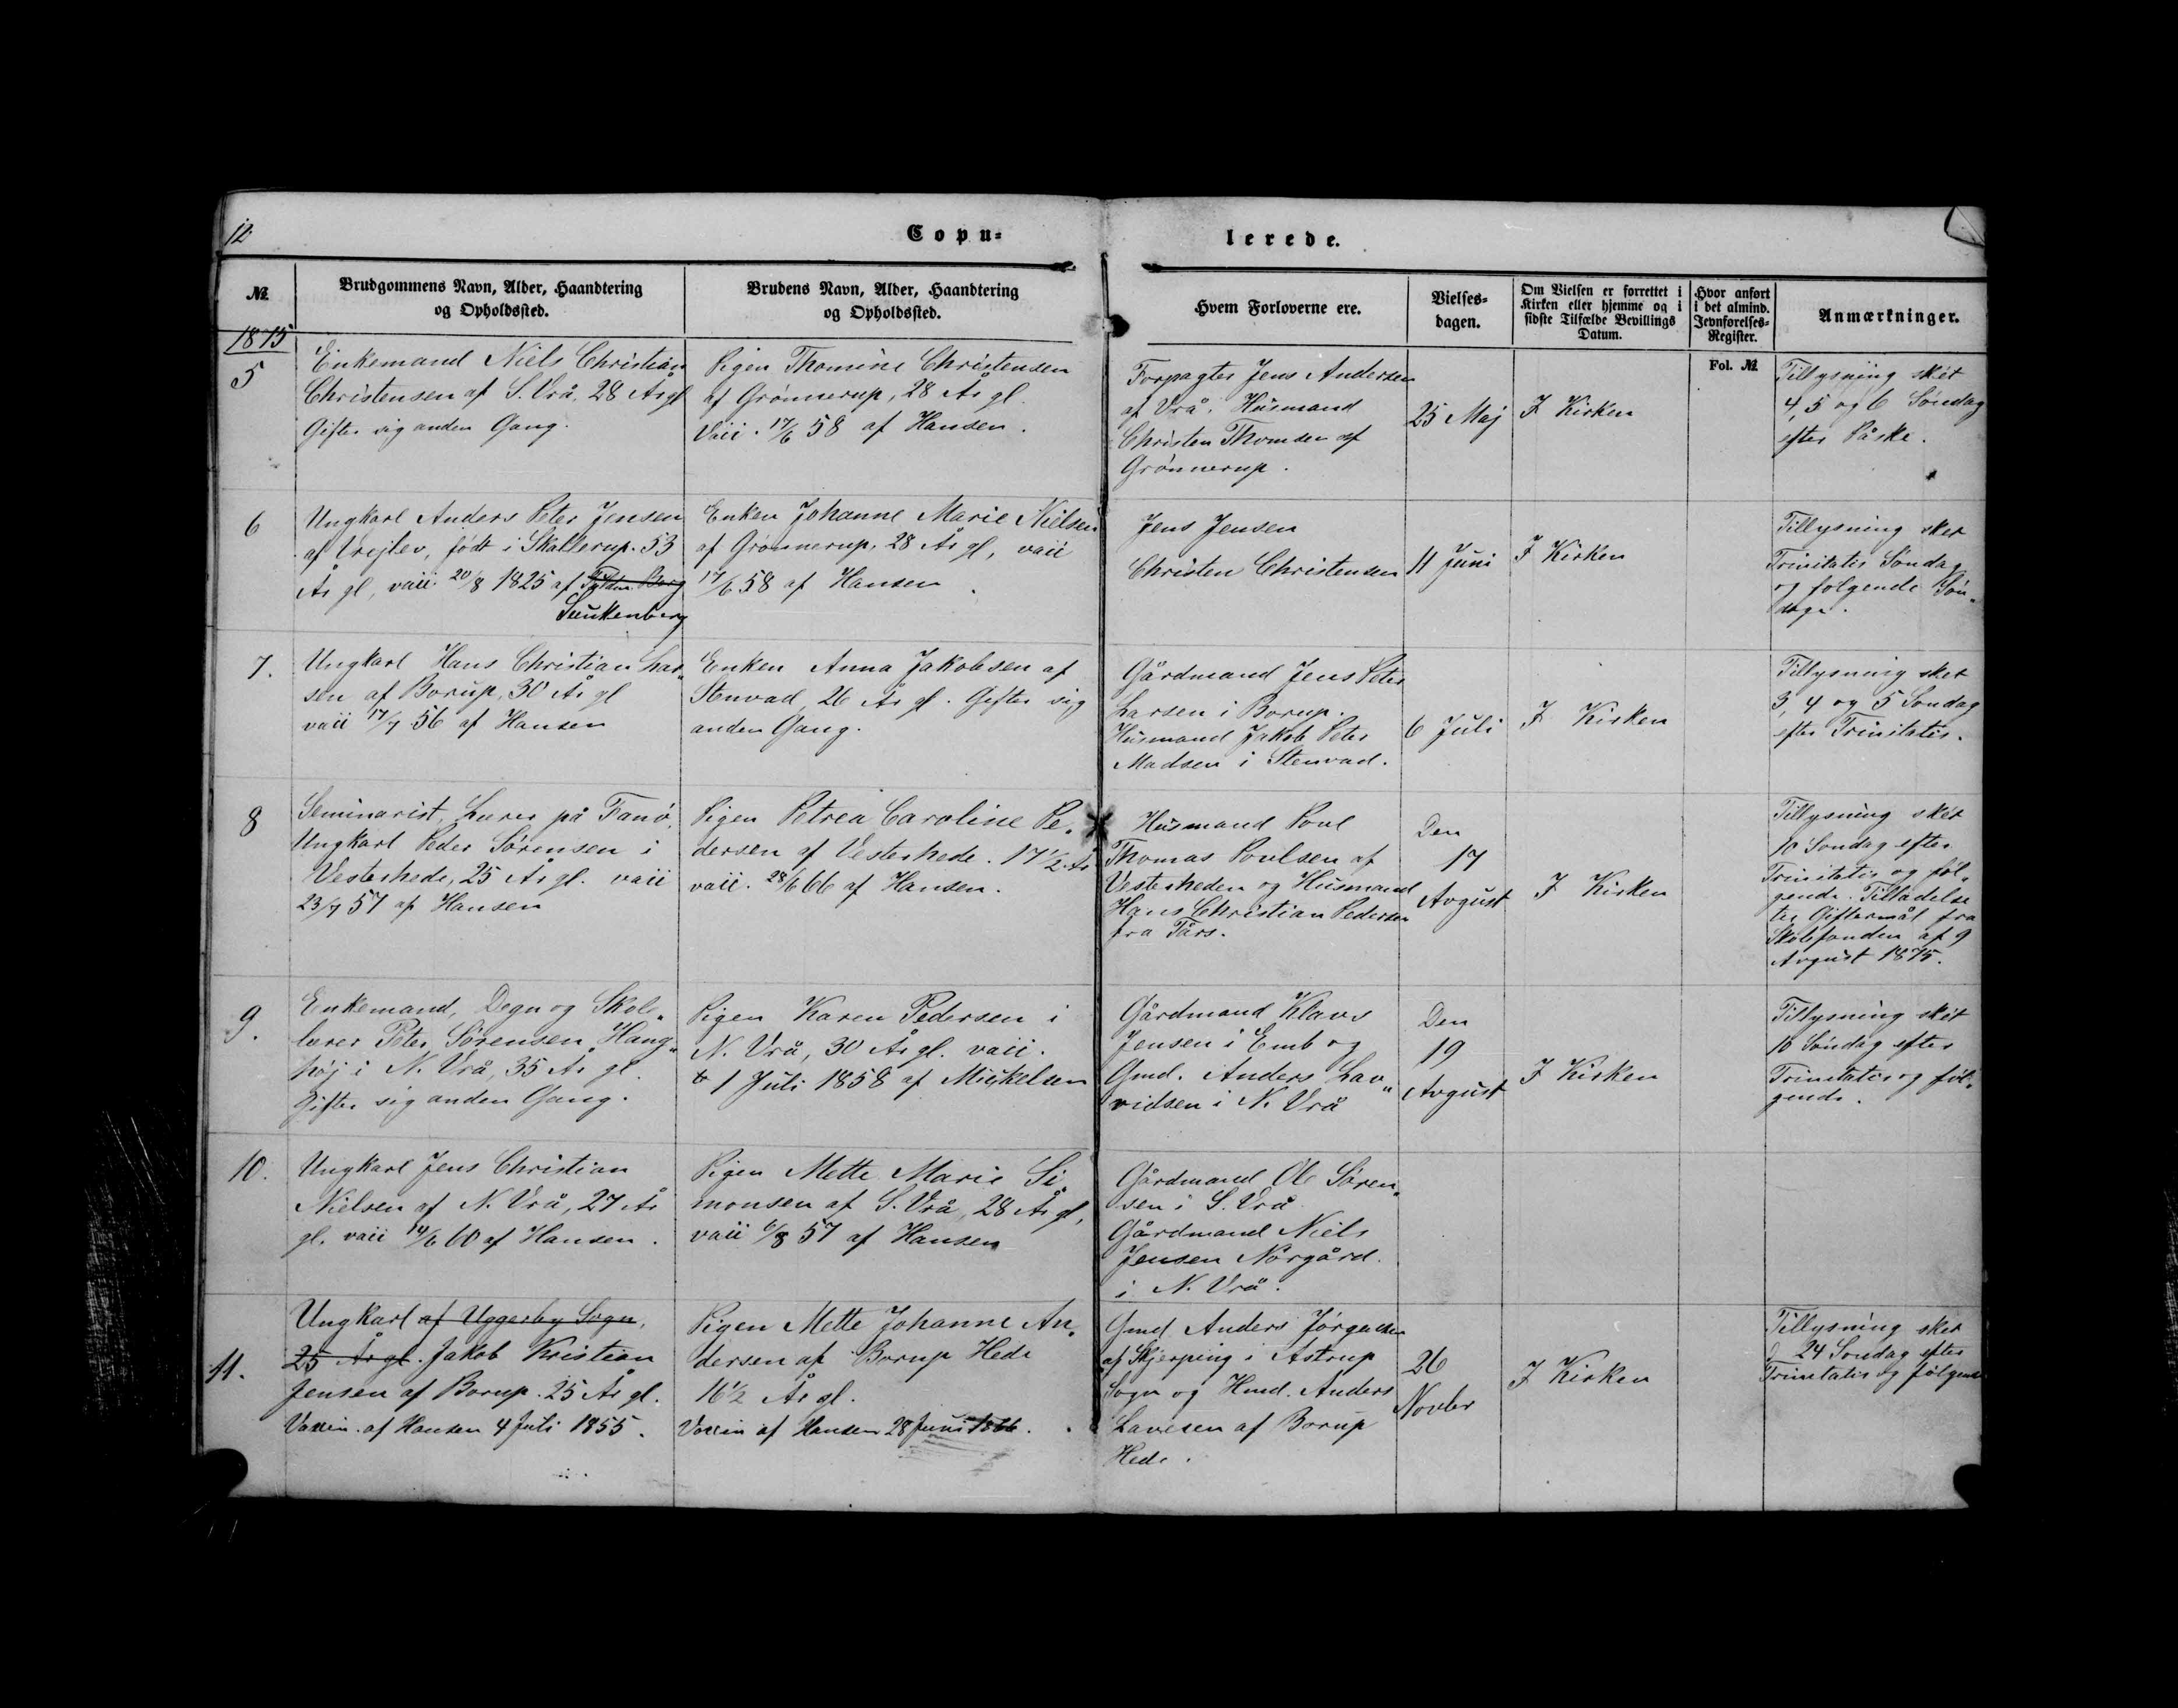 12
Copu=
lerede.
№
Brudgommens Navn, Alder, Haandtering
og Opholdssted.
Brudens Navn, Alder, Haandtering
og Opholdssted.
Hvem Forloverne ere.
Vielses=
dagen.
Om Vielsen er forrettet i
Kirken eller hjemme og i
sidste Tilfælde Bevillings
Datum.
Hvor anført
i det almind.
Jevnførelses=
Register.
Fol. №
Anmærkninger.
1875
5
Enkemand Niels Christian
Christensen af S. Vrå, 28 År gl
Gifter sig anden Gang.
Pigen Thomine Christensen
af Grønnerup, 28 År gl.
Vaii. 17/6 58 af Hansen.
Forpagter Jens Andersen
af Vrå. Husmand
Christen Thomsen af
Grønnerup.
25 Maj
I Kirken
Tillysning skét
4, 5 og 6 Søndag
efter Påske.
6
Ungkarl Anders Peter Jensen
af Vrejlev, født i Skallerup. 53
År gl, vaii. 20/8 1825 af
Enken Johanne Marie Nielsen
af Grønnerup, 28 År gl, vaii
17/6 58 af Hansen.
Jens Jensen
Christen Christensen
11 Juni
I Kirken
Tillysning sket
Trinitatis Søndag
og følgende Søn„
dage.
7.
Ungkarl Hans Christian Lar„
sen af Borup, 30 År gl
vaii 17/7 56 af Hansen
Enken Anna Jakobsen af
Stenvad, 26 År gl. Gifter sig
anden Gang.
Gårdmand Jens Peter
Larsen i Borup.
Husmand Jakob Peter
Madsen i Stenvad.
6 Juli
I Kirken
Tillysning sket
3, 4 og 5 Søndag
efter Trinitatis.
8
Seminarist, Lærer på Fanø,
Ungkarl Peder Sørensen i
Vesterhede, 25 År gl. vaii
23/7 57 af Hansen
Pigen Petrea Caroline Pe„
dersen af Vesterhede. 17 1/2 År
vaii. 28/6 66 af Hansen.
Husmand Poul
Thomas Poulsen af
Vesterheden og Husmand
Hans Christian Pedersen
fra Tårs.
Den
17
Avgust
I Kirken
Tillysning skét
10 Søndag efter
Trinitatis og føl„
gende. Tilladelse
til Giftermål fra
Skolefonden af 9
Avgust 1875.
9.
Enkemand, Degn og Skole„
lærer Peter Sørensen Hang„
høj i N. Vrå, 35 År gl.
Gifter sig anden Gang.
Pigen Karen Pedersen i
N. Vrå, 30 År gl. vaii.
1 Juli 1858 af Mickelsen
Gårdmand Klavs
Jensen i Emb og
Gmd. Anders Lav„
vidsen i N. Vrå
Den
19
Avgust
I Kirken
Tillysning skét
10 Søndag efter
Trinitatis og føl„
gende.
10.
Ungkarl Jens Christian
Nielsen af N. Vrå, 27 År
gl. vaii 14/6 60 af Hansen.
Pigen Mette Marie Si„
monsen af S. Vrå, 28 År gl,
vaii 6/8 57 af Hansen
Gårdmand Ole Søren„
sen i S. Vrå
Gårdmand Niels
Jensen Nørgård.
i N. Vrå.
11.
Ungkarl af Uggerby Sogn,
25 År gl. Jakob Kristian
Jensen af Borup. 25 År gl.
Vaccin. af Hansen 4 Juli 1855.
Pigen Mette Johanne An„
dersen af Borup Hede
16 1/2 År gl.
Vaccin af Hansen 28 Juni 1866.
Gmd Anders Jørgensen
af Skjerping i Astrup
Sogn og Hmd. Anders
Lavesen af Borup
Hede.
26
Novbr
I Kirken
Tillysning sket
24 Søndag efter
Trinitatis og følgende